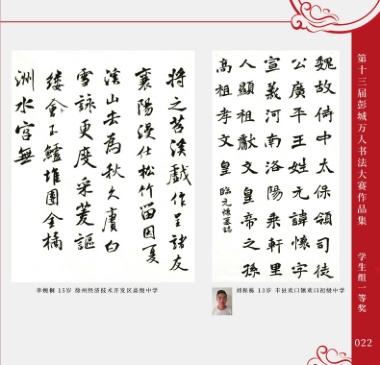 魏故侍中太保領司徒
公廣平王姓元諱懷字
宣義河南洛陽乘軒里
人顯祖獻文皇帝之孫
高祖孝文皇 臨元懷墓誌
將之苕溪戲作呈諸友
襄陽漫仕松竹留因夏
溪山去為秋久賡白
雪詠更度采菱謳
縷玉鱸堆團金橘
洲水宮無
15岁 徐州经济技术开发区高级中学
13岁 丰县欢口镇欢口初级中学
第十三届彭城万人书法大赛作品集
学生组一等奖
022